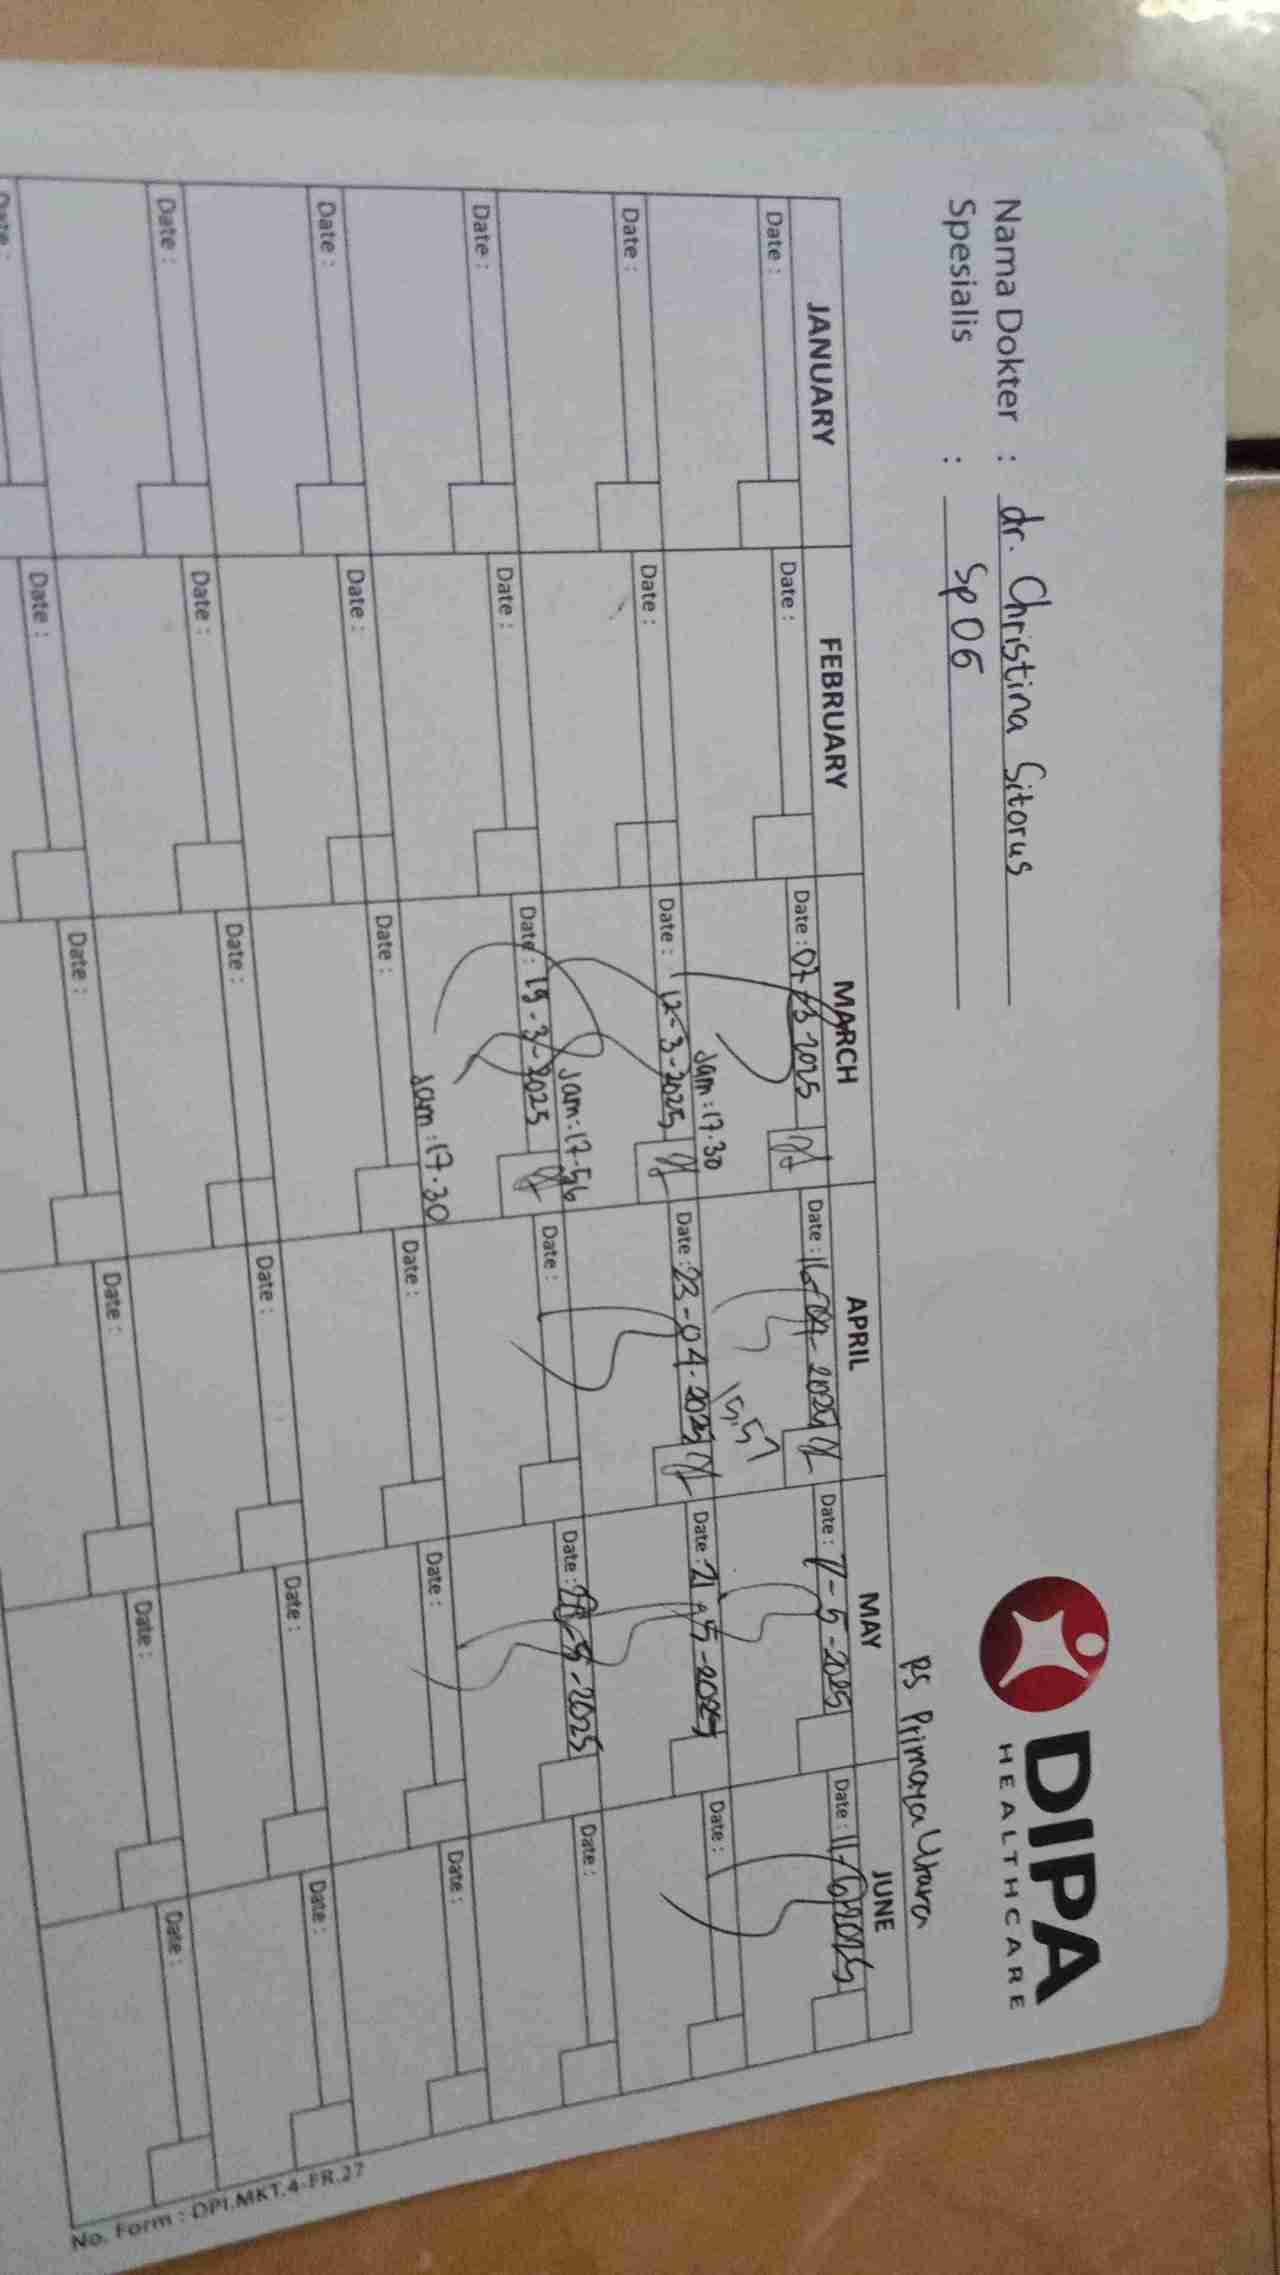 DIPA
HEALTHCARE
Nama Dokter : dr. Christina Sitorus
Spesialis : SpOG
RS Primaya Utara
JANUARY FEBRUARY MARCH APRIL MAY JUNE
Date : Date : Date : 07-3-2025 Date : 16-04-2025 Date : 7-5-2025 Date : 11-6-2025
Jam : 17.30 15.57
Date : Date : Date : 12-3-2025 Date : 23-04-2025 Date : 21-5-2025 Date :
Jam : 17.56
Date : Date : Date : 19-3-2025 Date : Date : 28-5-2025 Date :
Jam : 17.30
Date : Date : Date : Date : Date : Date :
Date : Date : Date : Date : Date : Date :
Date : Date : Date : Date : Date : Date :
No. Form : DPI.MKT.4-FR.27